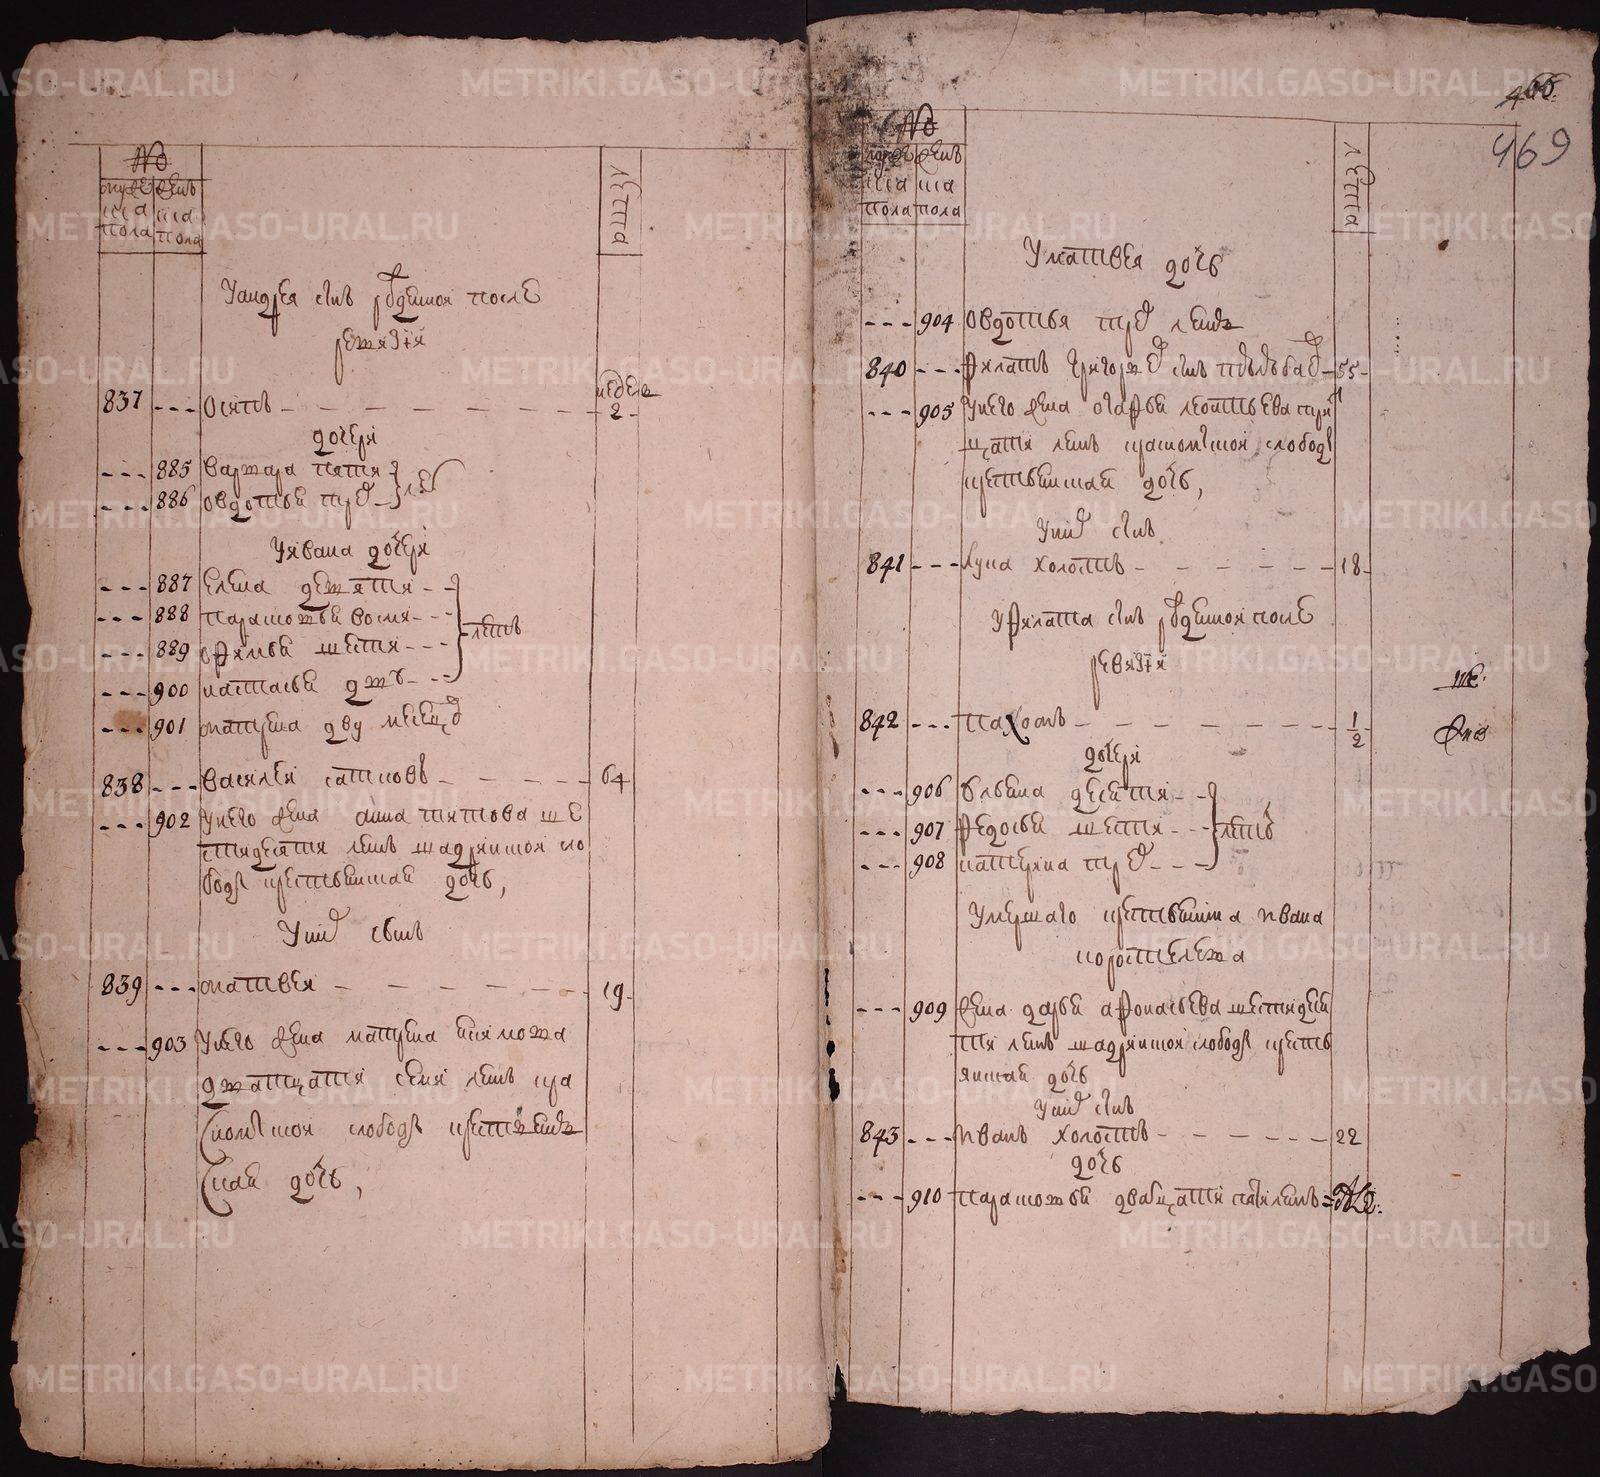 №
мужеска пола
женска пола
лѣта
У андрея сынъ рожденной после
ревизiи
837 --- Осипъ - - - - недель 2
дочери
--- 885 варвара пяти
--- 886 овдотья трех лет
У ивана дочери
--- 887 елена девяти --
--- 888 парасковья восми --
--- 889 офимья шести --- летъ
--- 900 настасья двухъ --
--- 901 матрена дву месецов
838 --- Василей - - - - 64
--- 902 У него жена анна титова ше
стидесяти летъ шадринской сло
боды крестьянская дочь,
У них сынъ
839 --- матвей - - - - 19
--- 903 У него жена матрена
дватцати семи летъ кра
слободы крестьян
ская дочь,
466
469
№
мужеска пола
женска пола
лѣта
У матвея дочь
--- 904 овдотья трех летъ
840 --- Филатъ григорьев сынъ - 55 -
--- 905 У него жена леонтьева три
тцати летъ слободы
крестьянская дочь,
У них сынъ
841 --- лука холостъ - - - - 18 -
У филата сынъ рожденной после
ревизiи
842 --- пахомъ - - - - 1/2
дочери
--- 906 ульяна десяти --
--- 907 федосья шести --- летъ
--- 908 катерина трех ---
Умершаго крестьянина ивана
коростелева
--- 909 жена дарья афонасьева шестидеся
ти летъ шадринской слободы кресть
янская дочь
У них сынъ
843 --- иванъ холостъ - - - - 22
дочь
--- 910 парасковья дватцати пяти летъ
METRIKI.GASO-URAL.RU